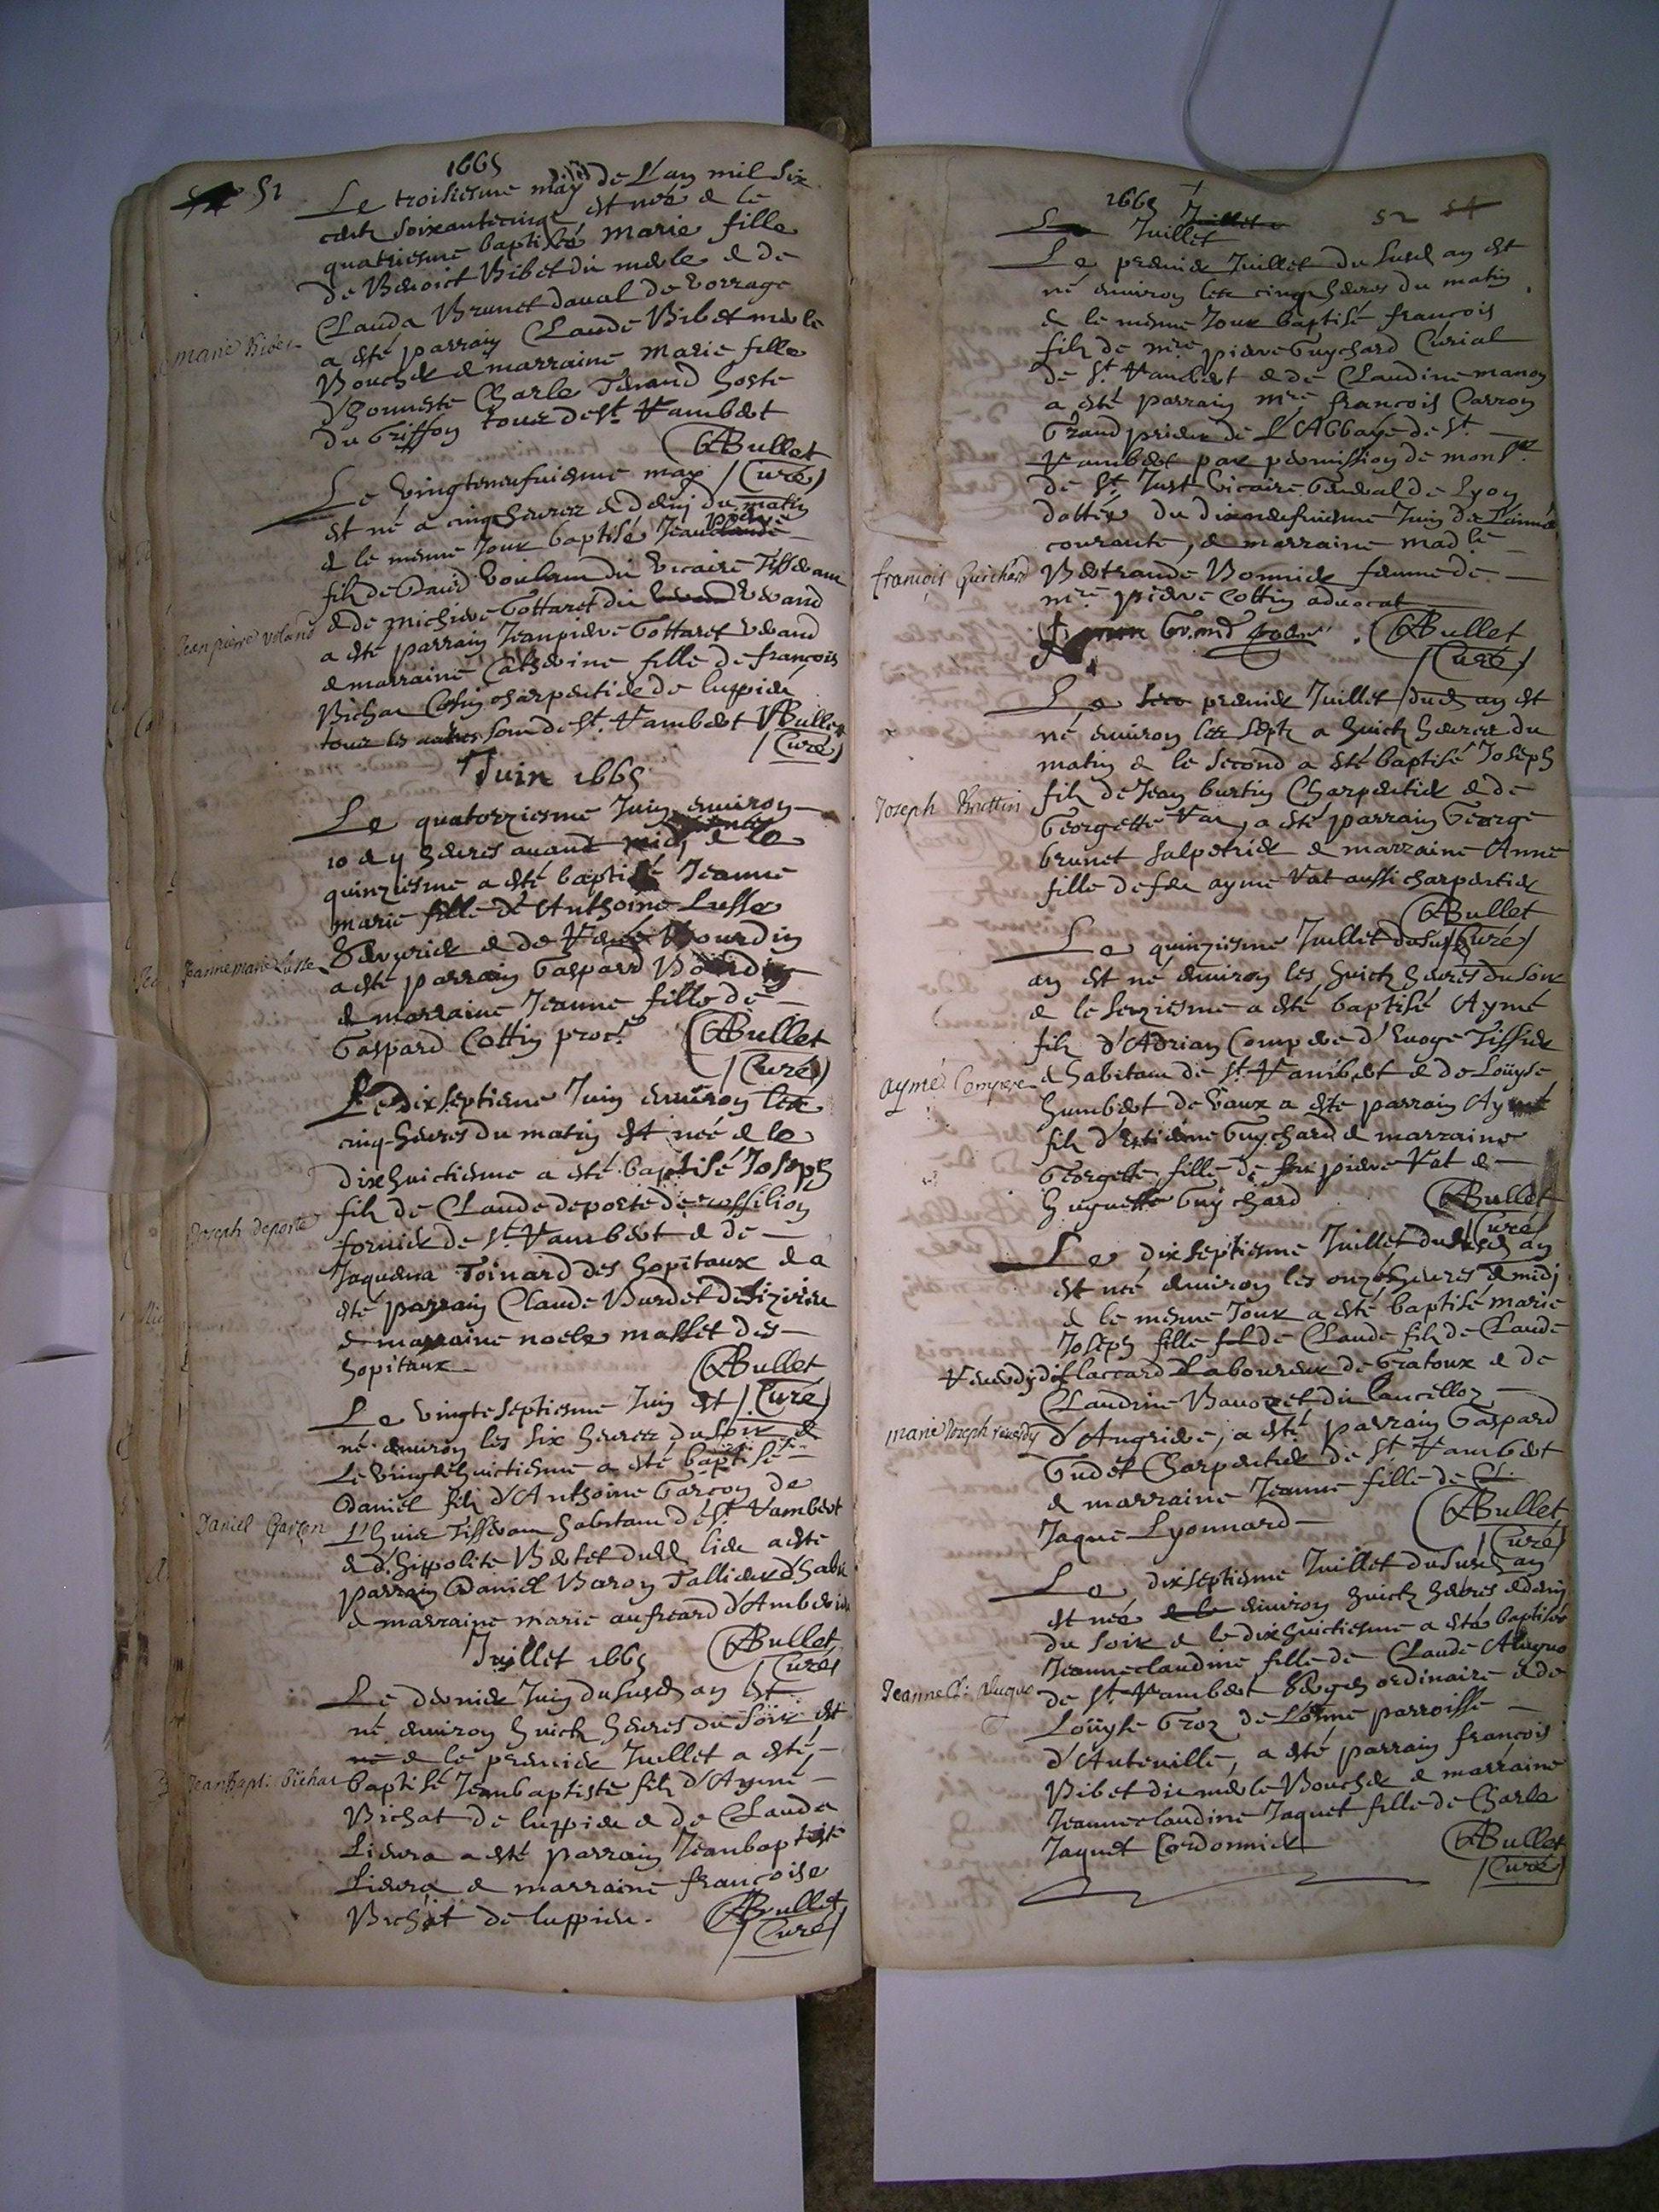 1665
51
Le troisiesme may de L'an mil six
cents soixantecinq est née & le
quatriesme baptisée Marie fille
de Benoict Bibet dit merle & de
Clauda Brunet daval de vorrage
a esté parrain Claude Bibet merle
Boucher & marraine Marie fille
Charle hoste
du Griffon tous de St. Rambert
ABullet
Curé
marie Bibet
Le vingtneufuiesme may
est né a cinq heures & demy du matin
& le mesme Jour baptisé Jean pierre
fils de David dit vicaire Tisserant
& de michiere Gottaret dit Verand
a esté parrain Jeanpierre Gottaret Verand
& marraine Catherine fille de françois
Bichat charpentier de luppieu
tous les autres sont de St. Rambert ABullet
Curé
Jean pierre
Juin 1665
Le quatorziesme Juin environ
10 & 11 heures avant midy & le
quinziesme a esté baptisée Jeanne
marie fille d'Anthoine Lusse
& de Bourdin
a esté parrain Gaspard Bourdin
& marraine Jeanne fille de
Gaspard Cottin procr.
ABullet
Curé
Jeanne marie Lusse
Le dixseptiesme Juin environ les
cinq heures du matin est né & le
dixhuictiesme a esté baptisé Joseph
fils de Claude deporte de rossilion
fornier de St. Rambert & de
Toinard des hopitaux & a
esté parrain Claude Burdet
& marraine noele mallet des
hopitaux
ABullet
Curé
Joseph deporte
Le vingtseptiesme Juin est
né environ les six heures du soir &
le vingthuictiesme a esté baptisé
Daniel fils d'Anthoine Garçon de
L'huis Tisseran habitant de St. Rambert
& d'hippolite Bertet dud. lieu a esté
parrain Daniel Baron
& marraine marie d'Amberieu
ABullet
Curé
Daniel Garçon
Juillet 1665
Le dernier Juin dususd an est
né environ huict heures du soir est
né & le premier Juillet a esté
baptisé Jeanbaptiste fils d'Aymé
Bichat de luppieu & de Clauda
Lieura a esté parrain Jeanbaptiste
Lieura & marraine françoise
Bichat de luppieu.
ABullet
Curé
Jean Bapti: Bichat
1665
Juillet
52
Juillet
Le premier Juillet du susd an est
né environ les cinq heures du matin
& le mesme Jour baptisé françois
fils de mre. pierre Guychard Curial
de St. Rambert & de Claudine manon
a esté parrain mre françois Carron
Grand prieur de L'Abbaye de St.
Rambert par permission de monsr.
de St. Just vicaire General de Lyon
dattée du dixneufuiesme Juin de L'année
courante, & marraine madlle
Bertrande Bonnier femme de
mre. pierre Cottin aduocat
ABullet
Curé
françois Guichard
Le premier Juillet dud an est
né environ les sept a huict heures du
matin & le second a esté baptisé Joseph
fils de Jean burtin Charpentier & de
Georgette Vat, a esté parrain George
brunet salpetrier & marraine Anne
fille de feu ayme Vat aussi charpentier
ABullet
Curé
Joseph Burttin
Le quinziesme Juillet du susd
an est né environ les huict heures du soir
& le seiziesme a esté baptisé Aymé
fils d'Adrian Compere d'Euoge Tissier
& habitant de St. Rambert & de Loüyse
humbert de vaux a esté parrain Aymé
fils d'Estienne Guychard & marraine
Georgette fille de feu pierre Vat &
huguette Guychard
ABullet
Curé
aymé Compere
Le dixseptiesme Juillet du susd an
est née environ les onze heures & midj
& le mesme Jour a esté baptisé marie
Joseph fille de Claude fils de Claude
Reverdy dit flaccard Laboureur de Gratoux & de
Claudine Bauozet dit lancelloz
d'Angriere, a esté parrain Gaspard
Gudet Charpentier de St. Rambert
& marraine Jeanne fille de
Jaque Lyonnard
ABullet
Curé
marie Joseph reverdy
Le dixseptiesme Juillet du susd an
est née environ huict heures & demy
du soir & le dixhuictiesme a esté baptisée
Jeanneclaudine fille de Claude Aluquo
de St. Rambert ordinaire & de
Loüyse Groz de Lonne parroisse
d'Auteville, a esté parrain françois
Bibet dit merle Boucher & marraine
Jeanneclaudine Jaquet fille de Charle
Jaquet Cordonnier
ABullet
Curé
Jeanne Cl: Aluquo